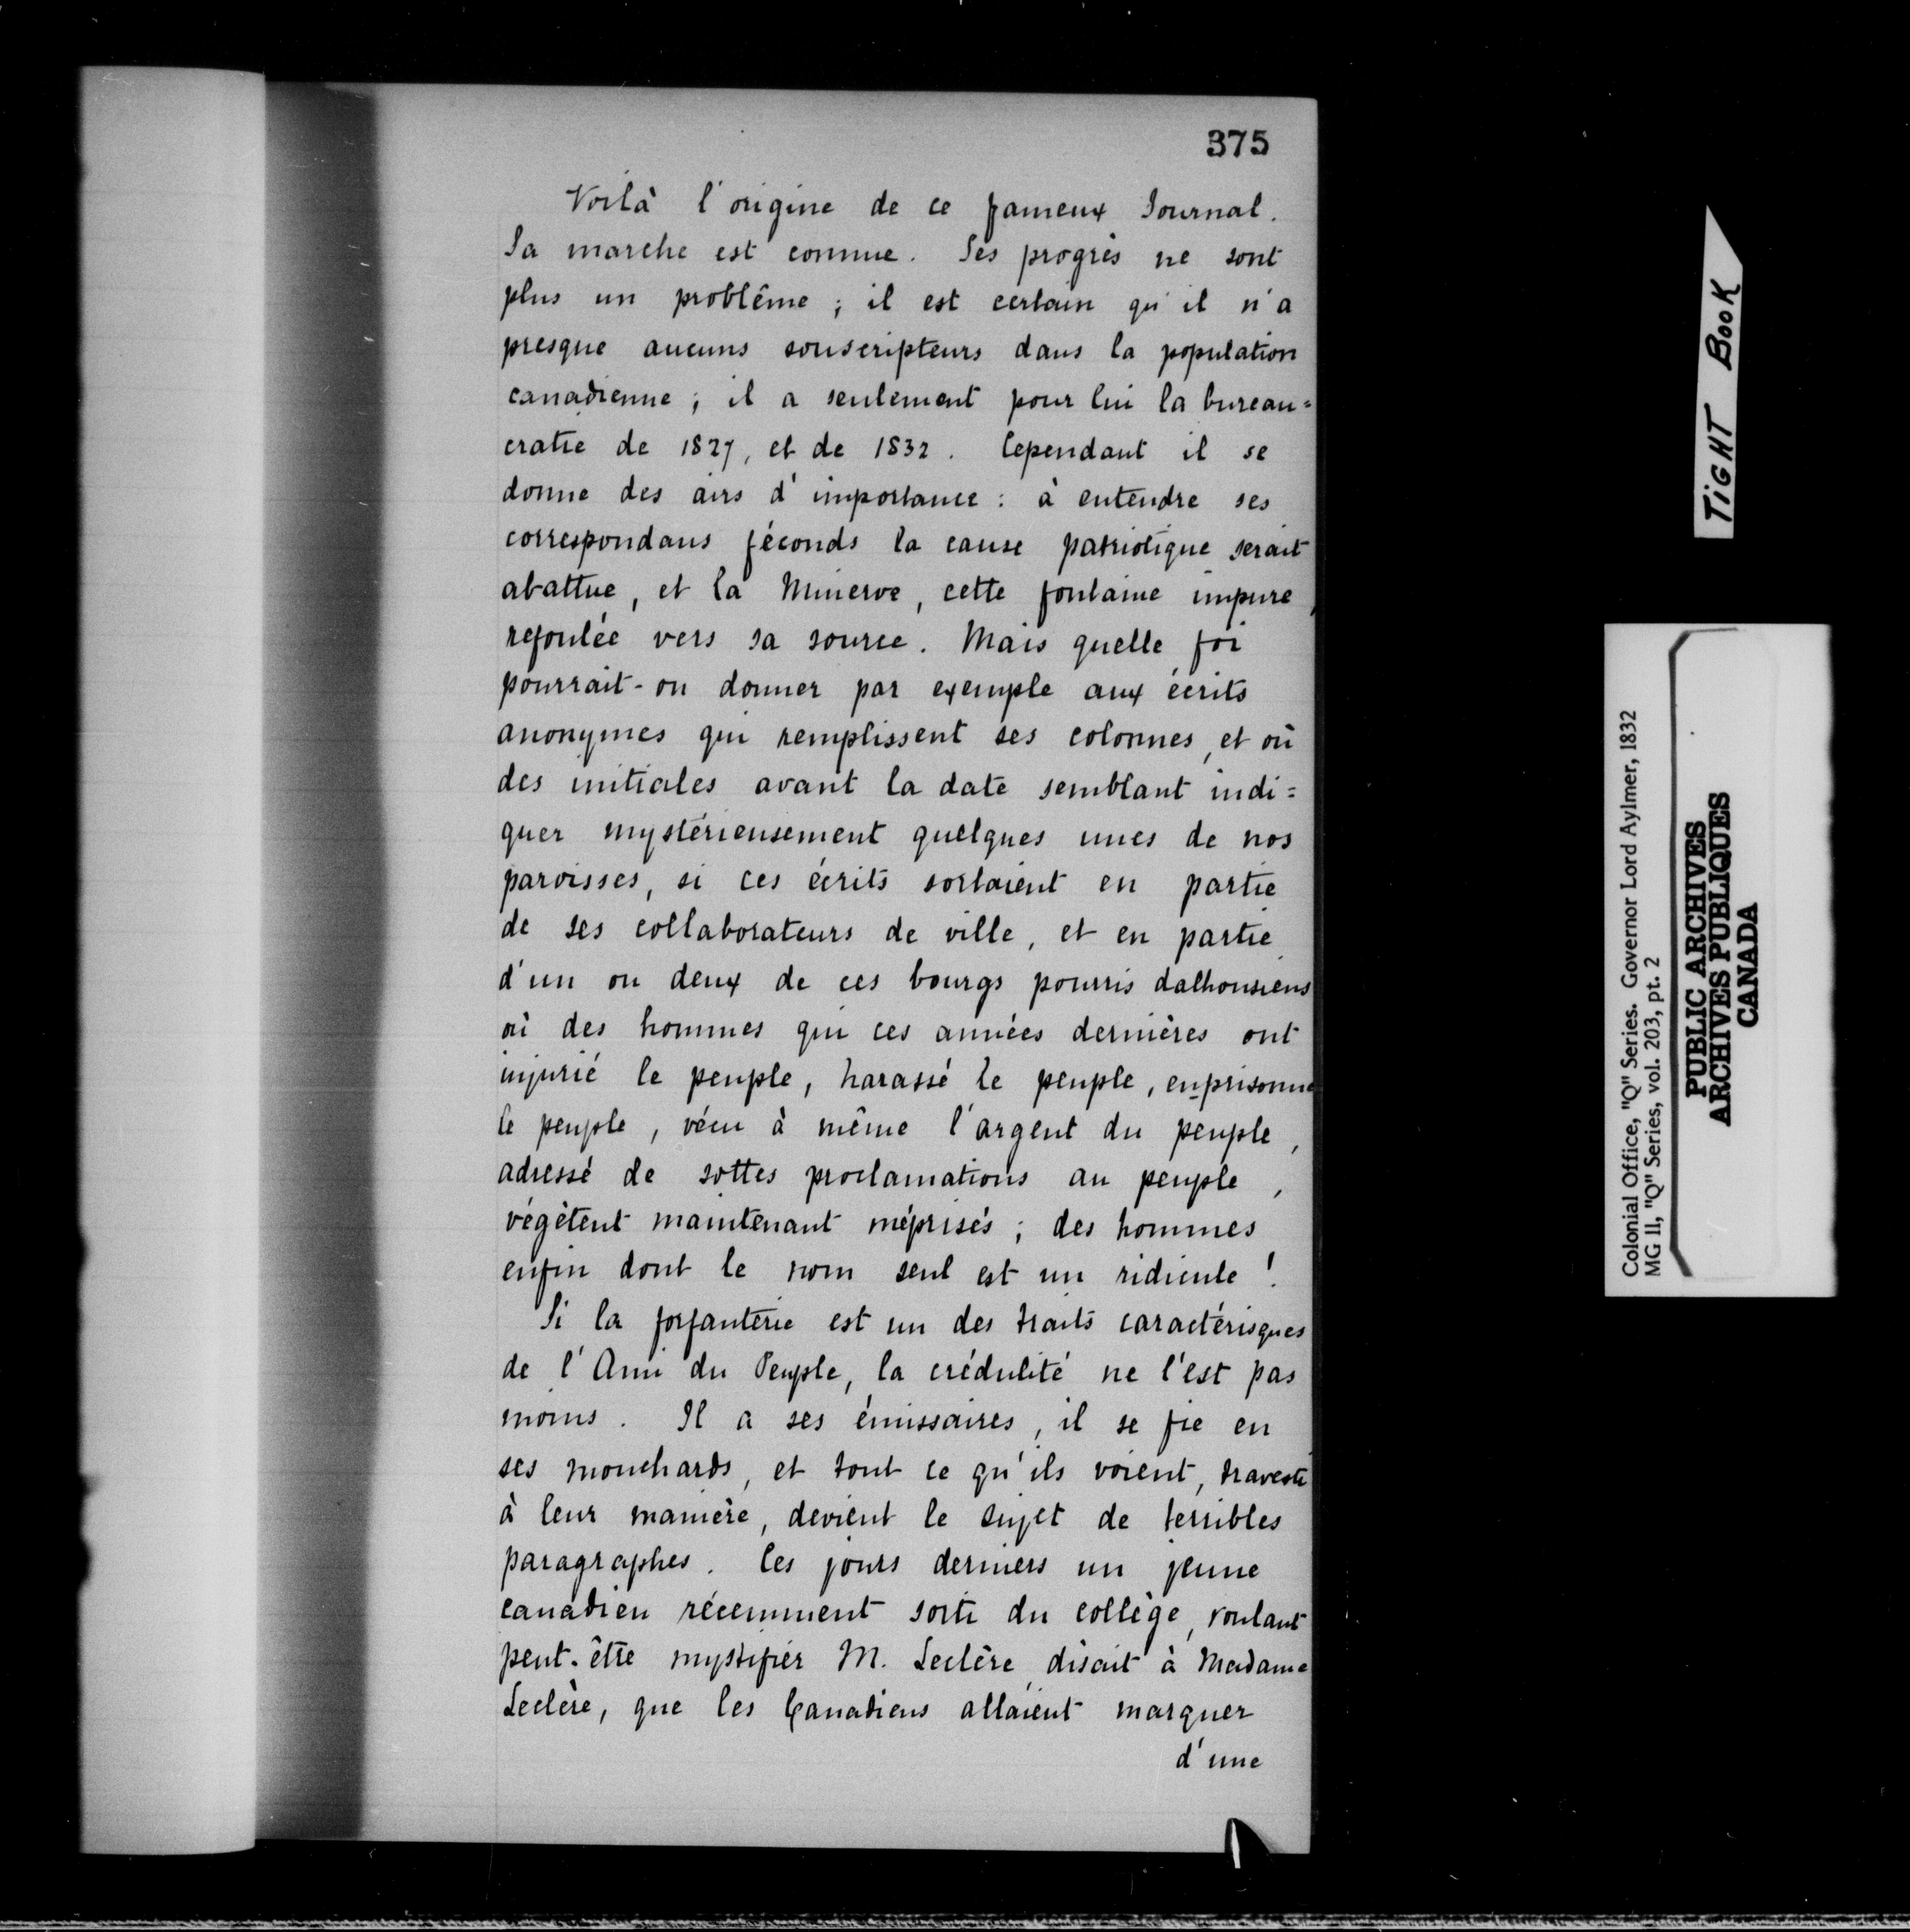 375
Voilà l'origine de ce fameux Journal.
Sa marche est connue. Ses progrès ne sont
plus un problême ; il est certain qu'il n'a
presque aucuns souscripteurs dans la population
canadienne ; il a seulement pour lui la bureau=
cratie de 1827, et de 1832. Cependant il se
donne des airs d'importance : à entendre ses
correspondans féconds la cause patriotique serait
abattue, et la Minerve, cette fontaine impure,
refoulée vers sa source. Mais quelle foi
pourrait-on donner par exemple aux écrits
anonymes qui remplissent ses colonnes, et où
des initiales avant la date semblant indi=
quer mystérieusement quelques unes de nos
paroisses, si ces écrits sortaient en partie
de ses collaborateurs de ville, et en partie
d'un ou deux de ces bourgs pourris dalhousiens
où des hommes qui ces années dernières ont
injurié le peuple, harassé le peuple, enprisonné
le peuple, vécu à même l'argent du peuple,
adressé de sottes proclamations au peuple,
végètent maintenant méprisés ; des hommes
enfin dont le nom seul est un ridicule !
Si la forfanterie est un des traits caractérisques
de l'Ami du Peuple, la crédulité ne l'est pas
moins. Il a ses émissaires, il se fie en
ses mouchards, et tout ce qu'ils voient, travesti
à leur manière, devient le sujet de terribles
paragraphes. Ces jours derniers un jeune
canadien récemment sorti du collège, voulant
peut-être mystifier M. Leclère, disait à Madame
Leclère, que les Canadiens allaient marquer
d'une
TIGHT BOOK
Colonial Office, "Q" Series. Governor Lord Aylmer, 1832
MG 11, "Q" Series, vol. 203, pt. 2
PUBLIC ARCHIVES
ARCHIVES PUBLIQUES
CANADA